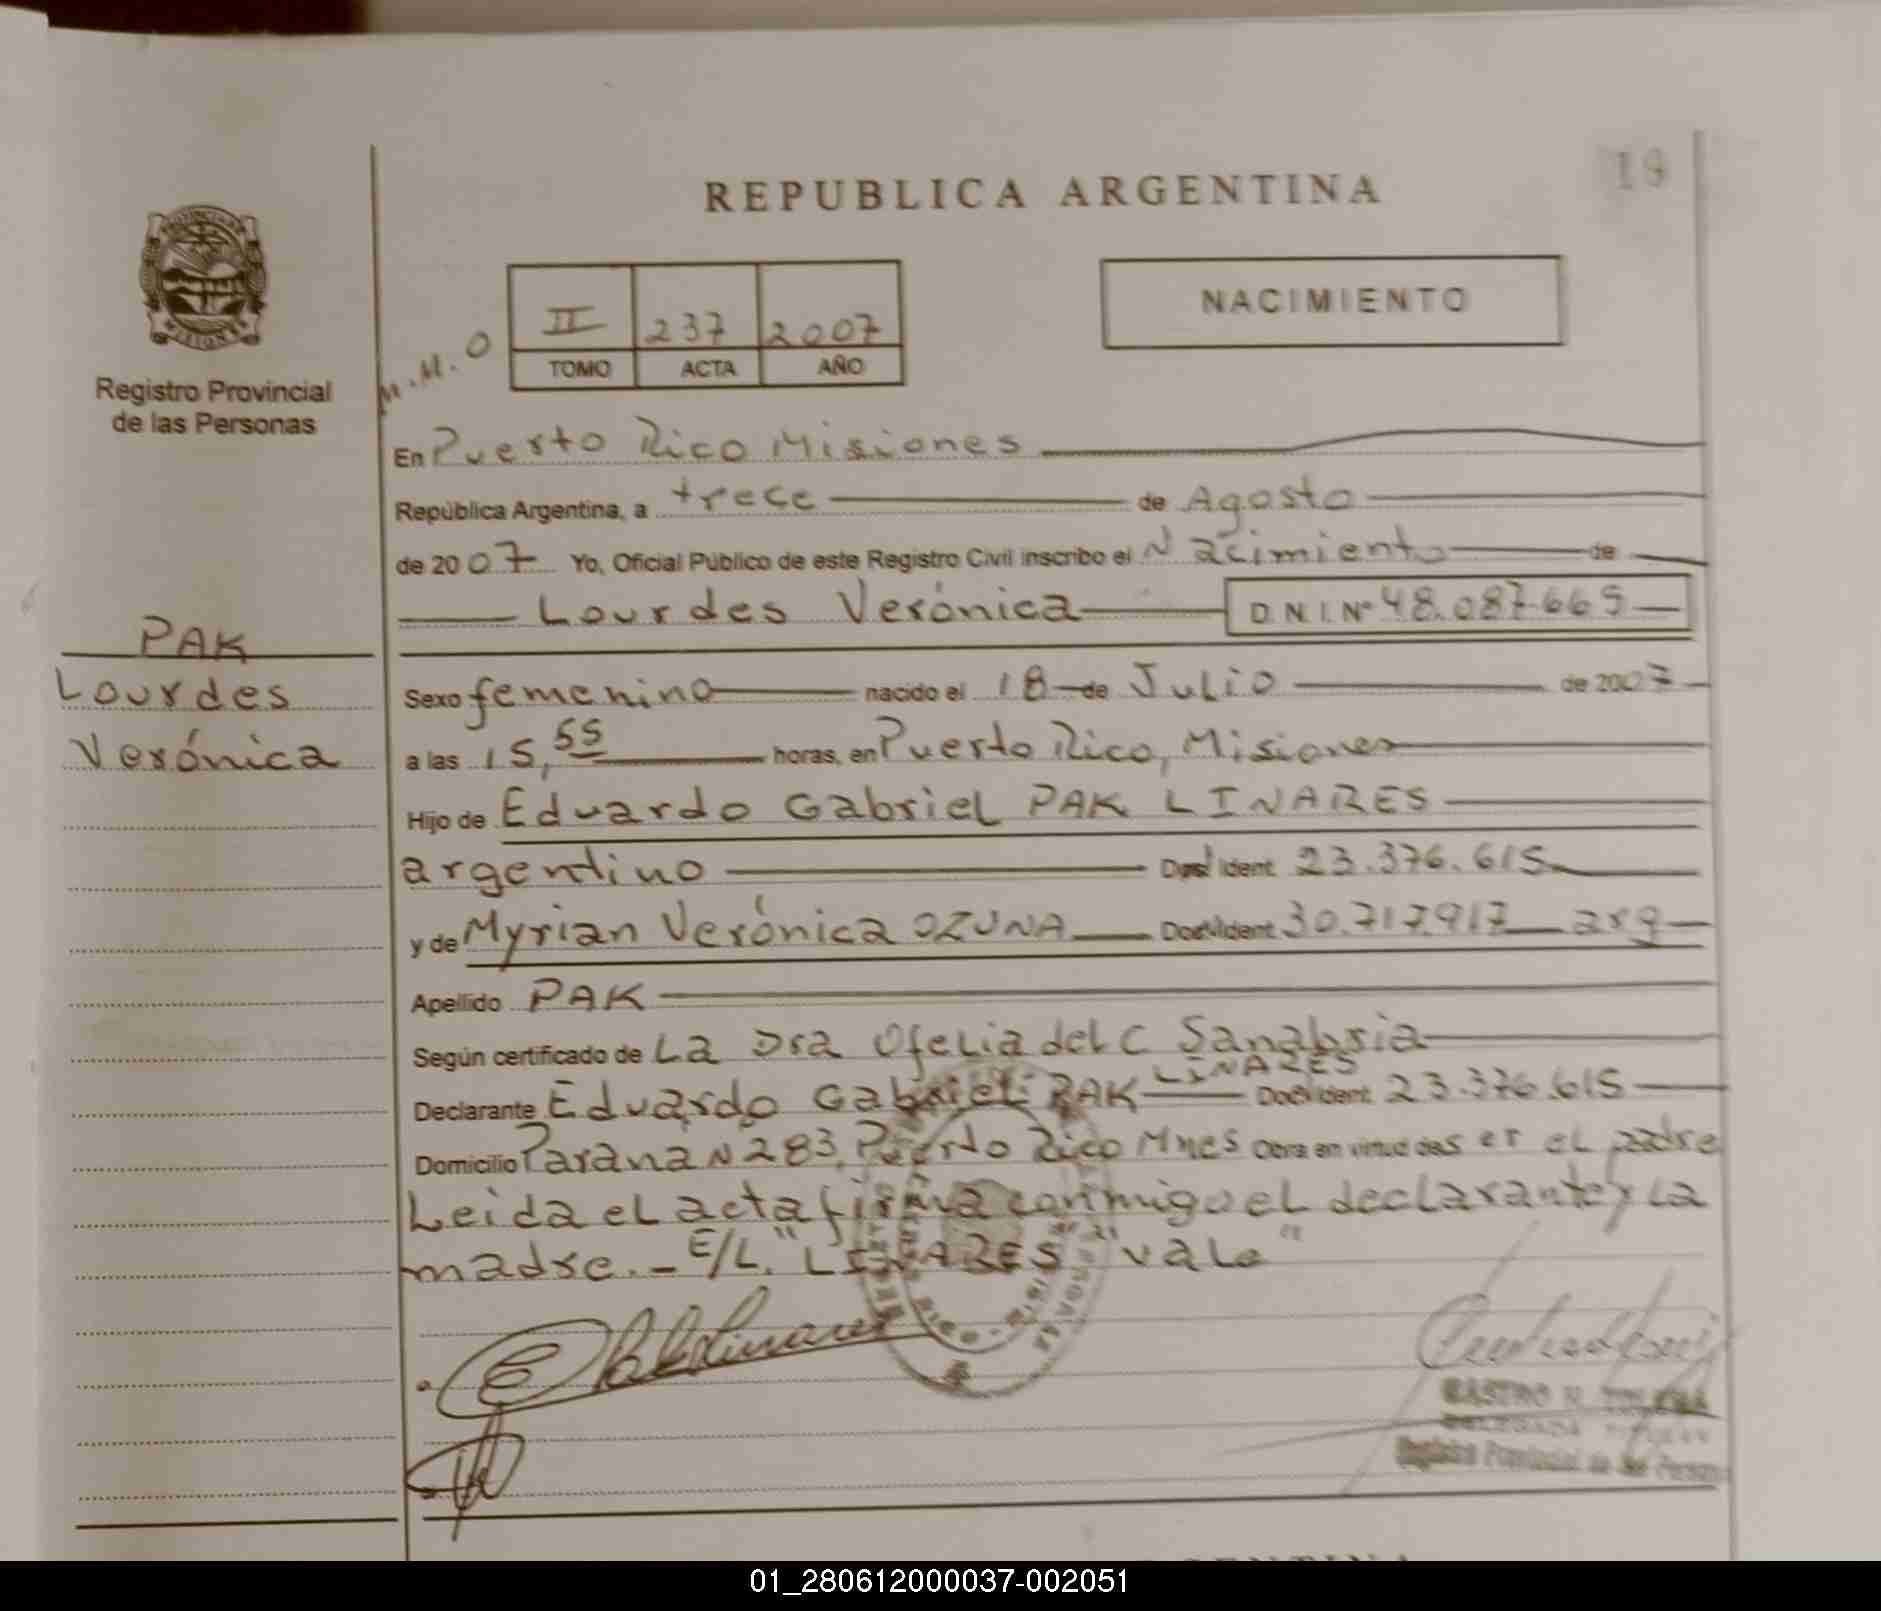 19
REPUBLICA ARGENTINA
NACIMIENTO
II 237 2007
TOMO ACTA AÑO
M.M.O
Registro Provincial
de las Personas
En Puerto Rico Misiones
República Argentina, a trece de Agosto
de 2007 Yo, Oficial Público de este Registro Civil inscribo el Nacimiento de
Lourdes Verónica D.N.I. Nº 48.087.665
PAK
Lourdes
Verónica
Sexo femenino nacido el 18 de Julio de 2007
a las 15,55 horas, en Puerto Rico, Misiones
Hijo de Eduardo Gabriel PAK LINARES
argentino Ident 23.376.615
y de Myrian Verónica OZUNA Ident 30.717.917 arg
Apellido PAK
Según certificado de La Dra Ofelia del C Sanabria
Declarante Eduardo Gabriel PAK LINARES Ident 23.376.615
Domicilio Paraná N 283, Puerto Rico Mnes Obra en virtud de ser el padre
Leida el acta firma conmigo el declarante y la
madre.- E/L. "LINARES" "vale"
Registro Provincial de las Personas
01_280612000037-002051